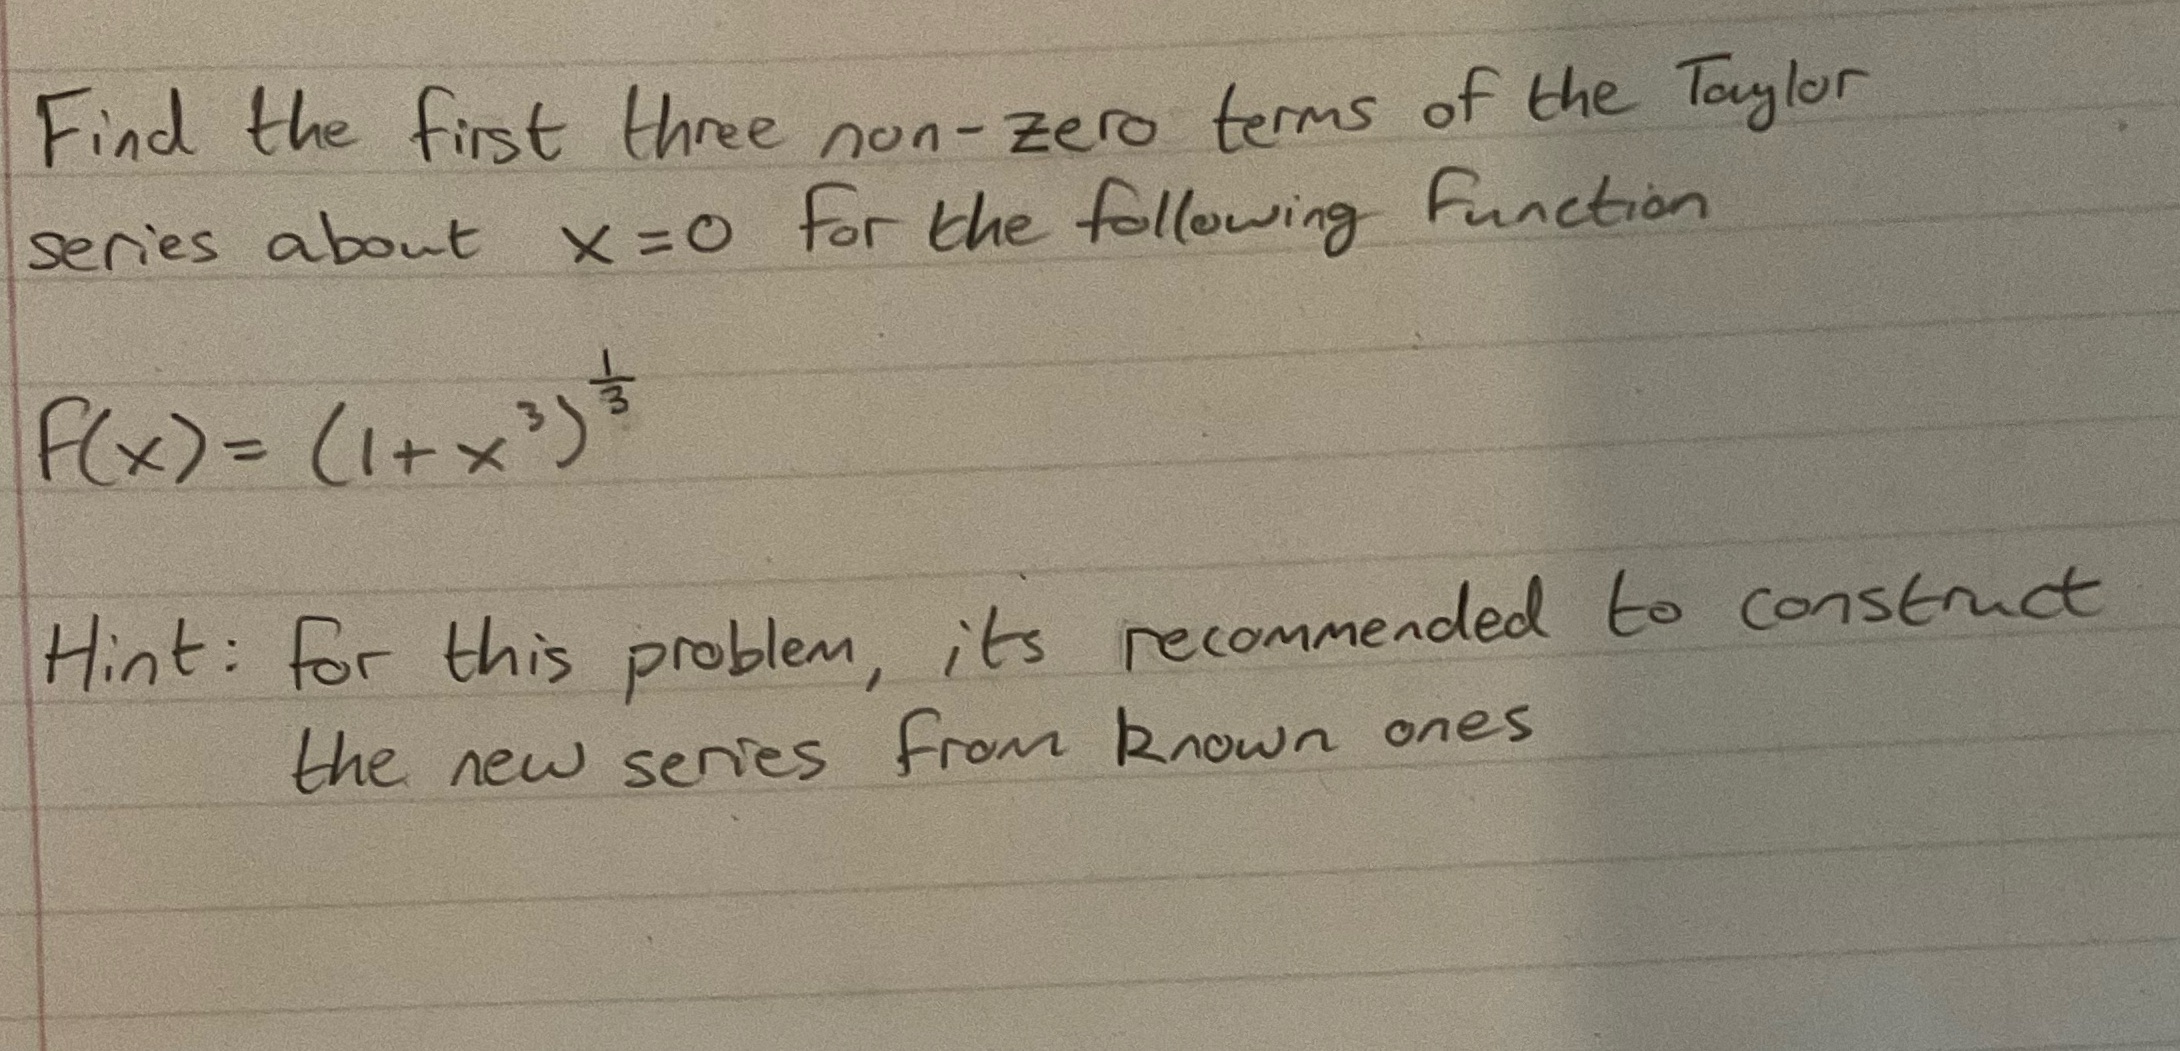 Find the first three non-zero terms of the Taylor
series about x=0 for the following function
f(x) = (1+x³)^(1/3)
Hint: for this problem, its recommended to construct
the new series from known ones